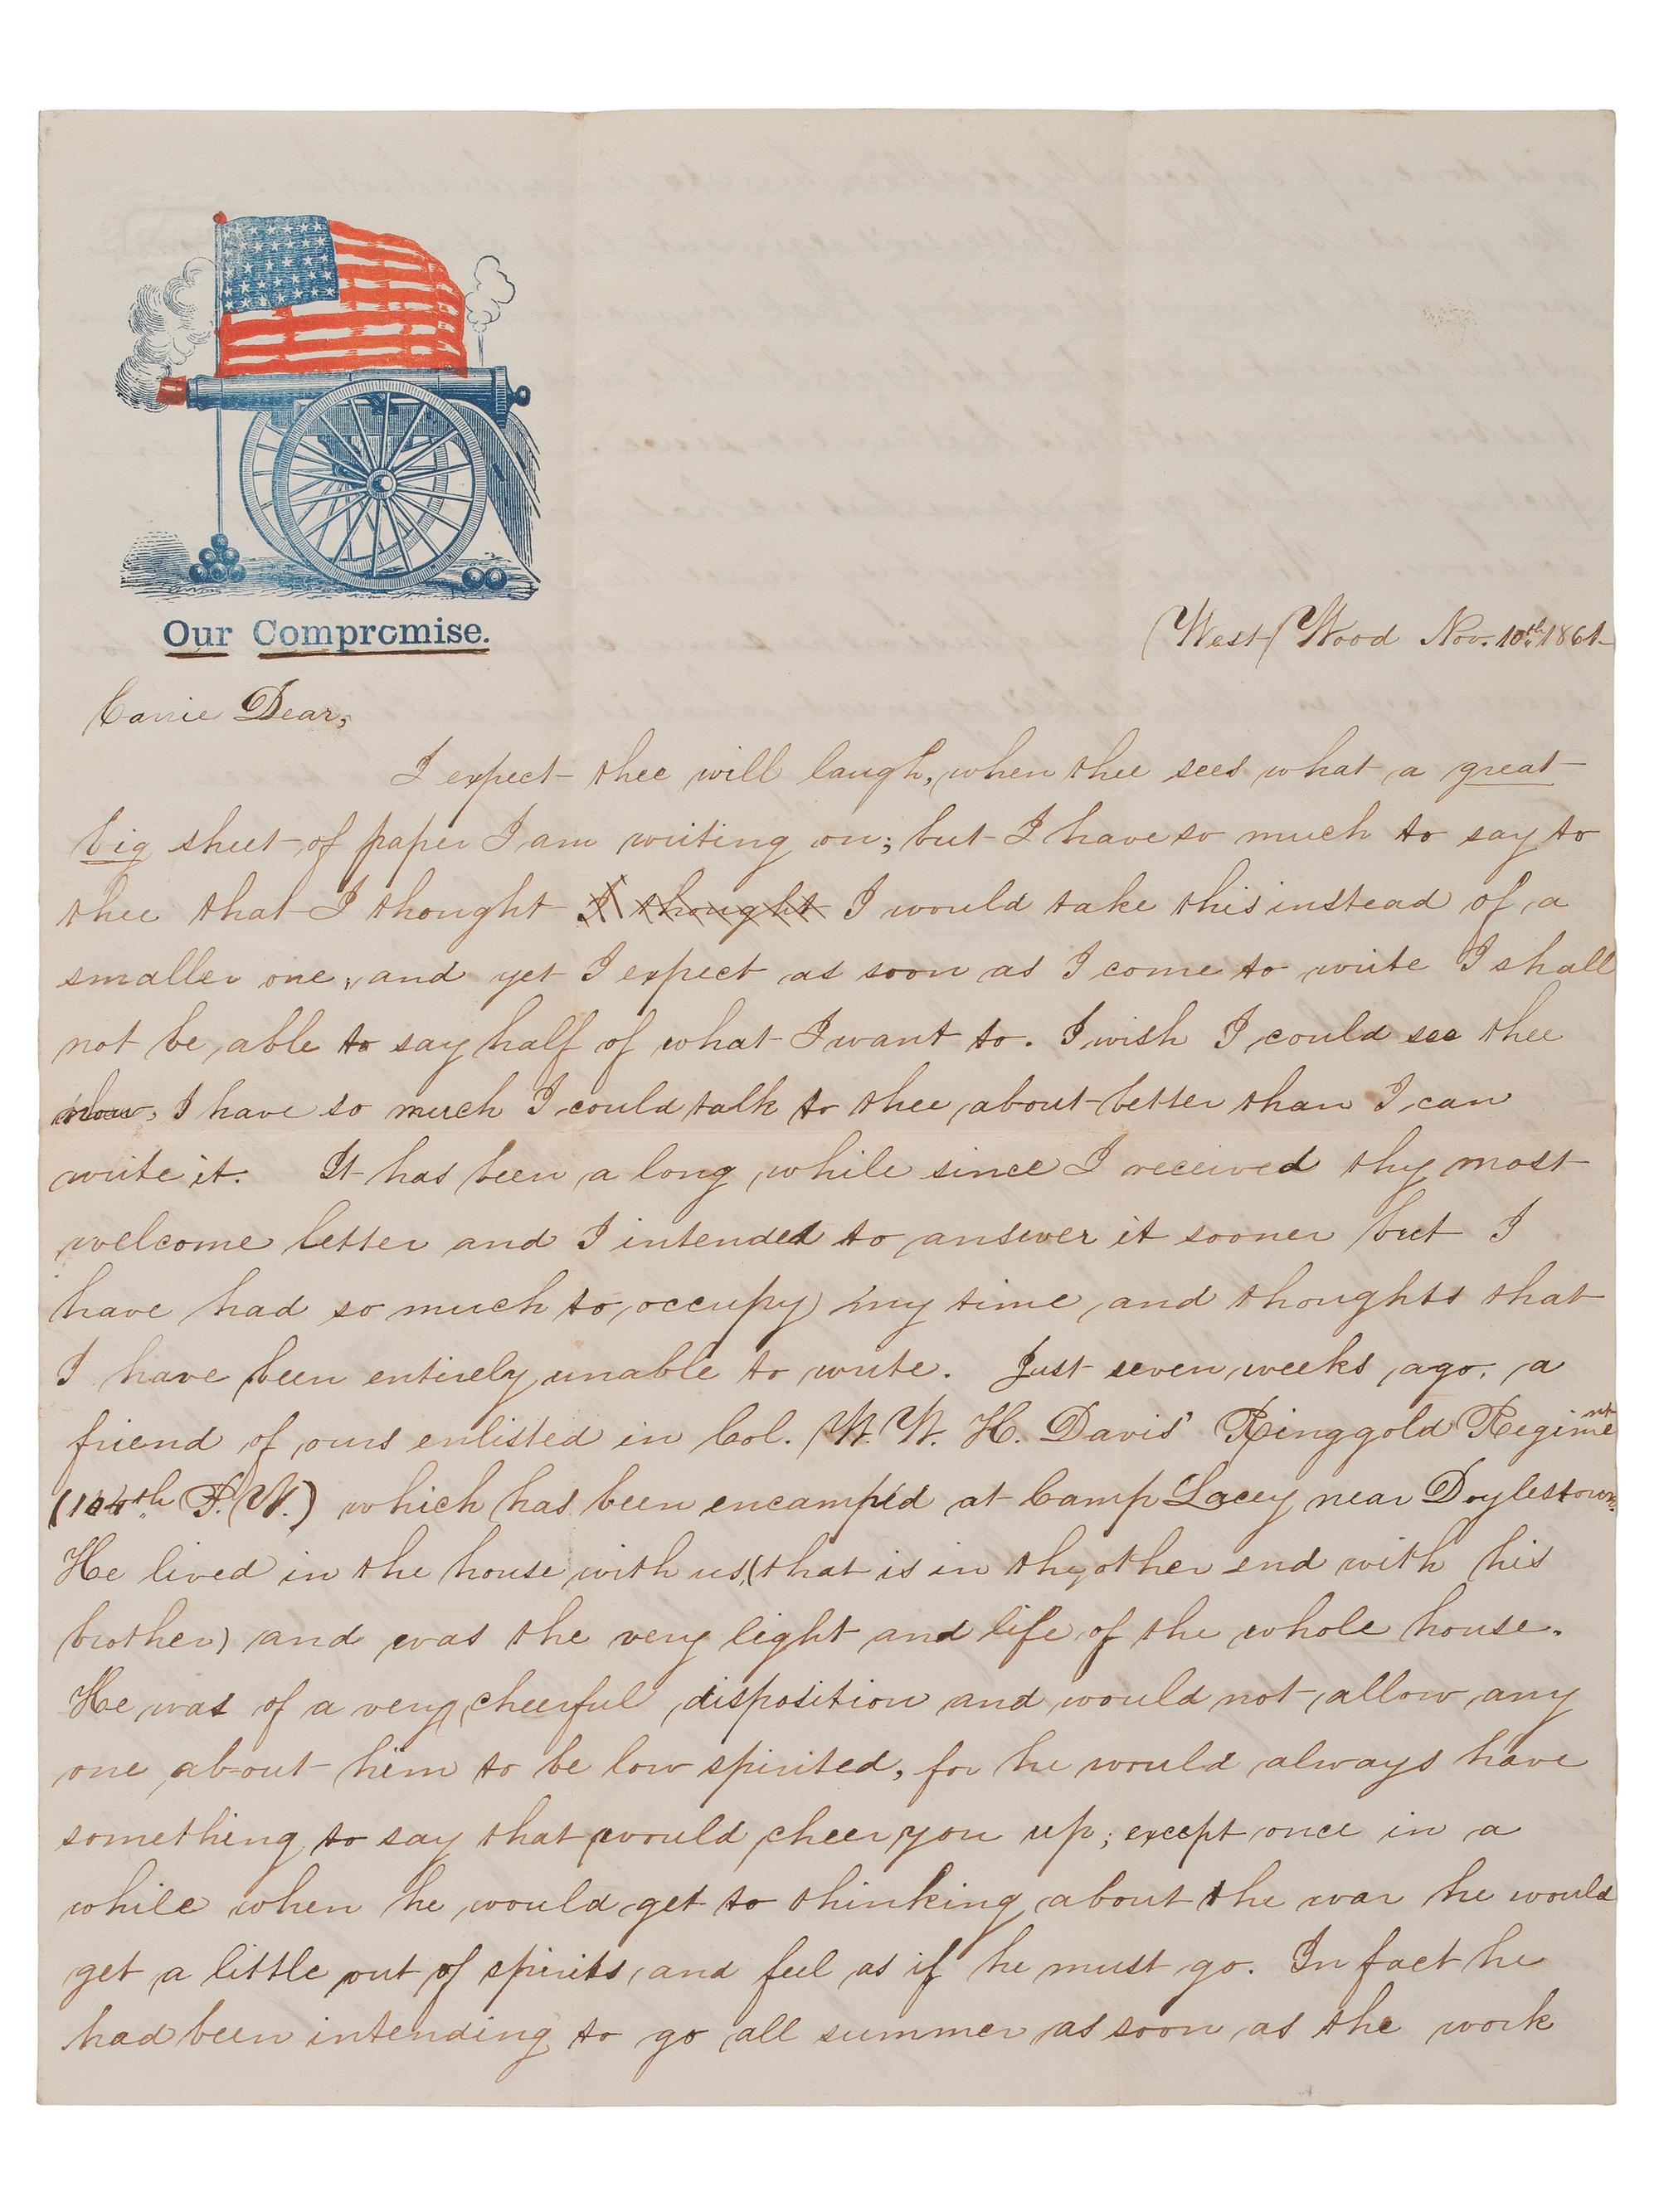 Our Compromise.
West Wood Nov. 10th 1861
Carrie Dear,
I expect thee will laugh, when thee sees what a great
big sheet of paper I am writing on; but I have so much to say to
thee that I thought I thought I would take this instead of a
smaller one, and yet I expect as soon as I come to write I shall
not be able to say half of what I want to. I wish I could see thee
now, I have so much I could talk to thee about better than I can
write it. It has been a long while since I received thy most
welcome letter and I intended to answer it sooner but I
have had so much to occupy my time and thoughts that
I have been entirely unable to write. Just seven weeks ago, a
friend of ours enlisted in Col. W. W. H. Davis' Ringgold Regiment
(104th P. V.) which has been encamp'd at Camp Lacey near Doylestown.
He lived in the house with us, (that is in the other end with his
brother) and was the very light and life of the whole house.
He was of a very cheerful disposition and would not allow any
one about him to be low spirited, for he would always have
something to say that would cheer you up; except once in a
while when he would get to thinking about the war he would
get a little out of spirits, and feel as if he must go. In fact he
had been intending to go all summer as soon as the work